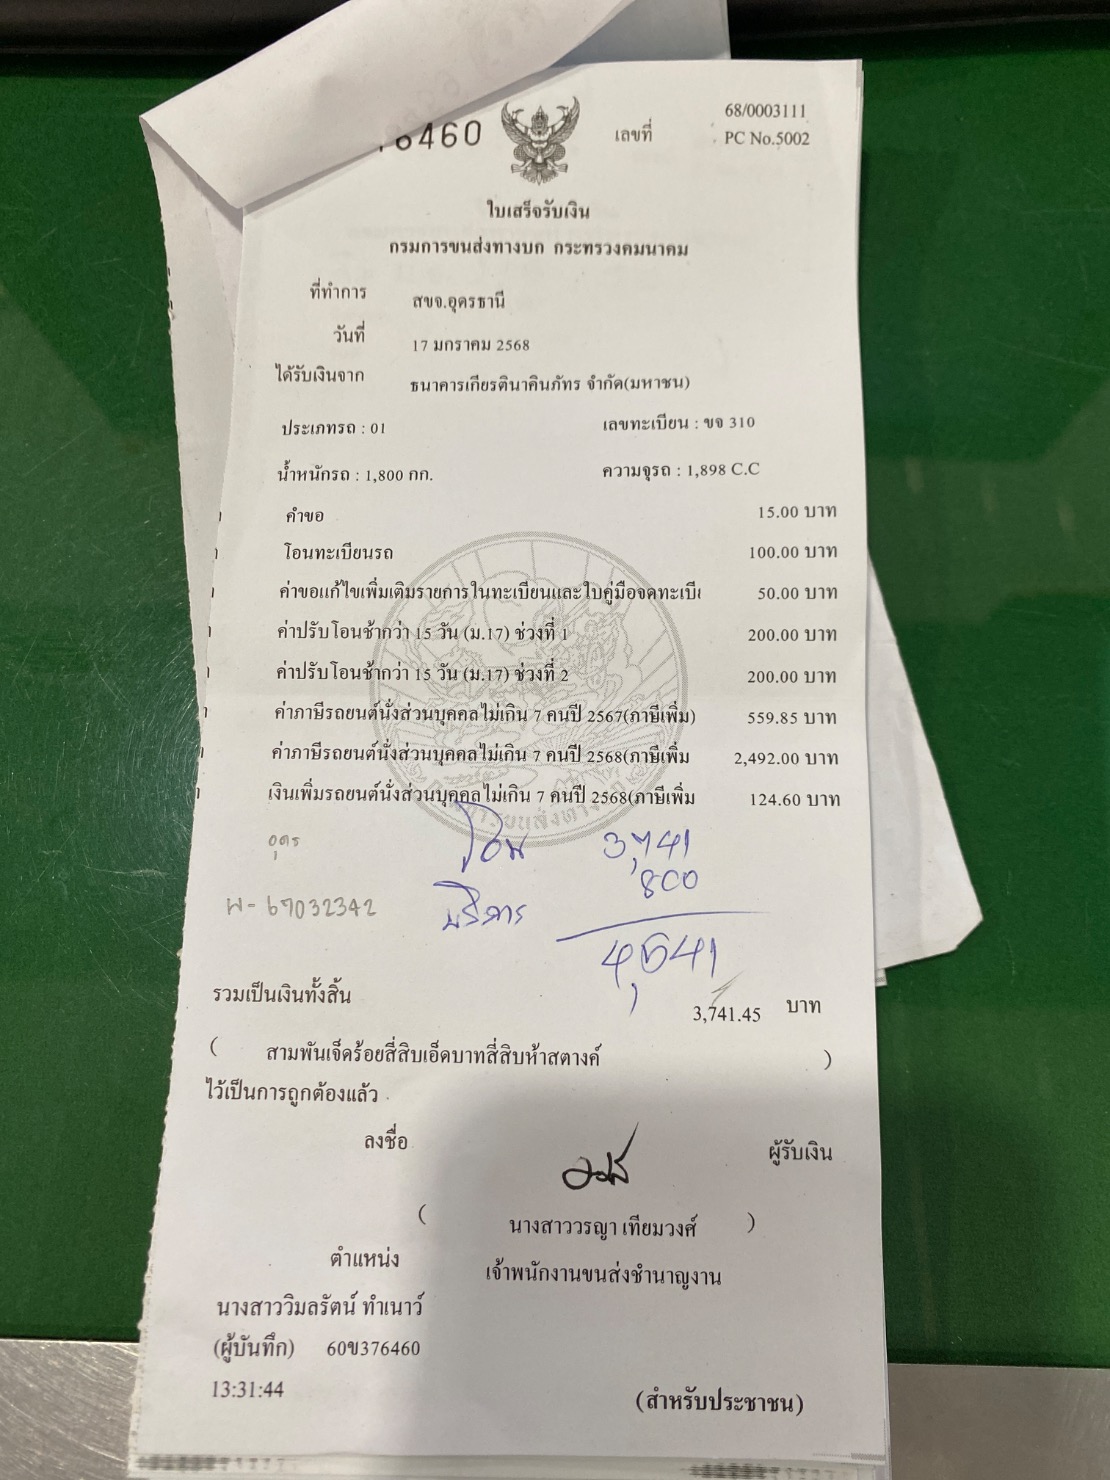 6460
เลขที่ 68/0003111
PC No.5002
ใบเสร็จรับเงิน
กรมการขนส่งทางบก กระทรวงคมนาคม
ที่ทำการ สขจ.อุดรธานี
วันที่ 17 มกราคม 2568
ได้รับเงินจาก ธนาคารเกียรตินาคินภัทร จำกัด(มหาชน)
ประเภทรถ : 01 เลขทะเบียน : ขจ 310
น้ำหนักรถ : 1,800 กก. ความจุรถ : 1,898 C.C
คำขอ 15.00 บาท
โอนทะเบียนรถ 100.00 บาท
ค่าขอแก้ไขเพิ่มเติมรายการในทะเบียนและใบคู่มือจดทะเบี 50.00 บาท
ค่าปรับโอนช้ากว่า 15 วัน (ม.17) ช่วงที่ 1 200.00 บาท
ค่าปรับโอนช้ากว่า 15 วัน (ม.17) ช่วงที่ 2 200.00 บาท
ค่าภาษีรถยนต์นั่งส่วนบุคคลไม่เกิน 7 คนปี 2567(ภาษีเพิ่ม) 559.85 บาท
ค่าภาษีรถยนต์นั่งส่วนบุคคลไม่เกิน 7 คนปี 2568(ภาษีเพิ่ม 2,492.00 บาท
เงินเพิ่มรถยนต์นั่งส่วนบุคคลไม่เกิน 7 คนปี 2568(ภาษีเพิ่ม 124.60 บาท
อุดร โอน 3,741
800
พ- 67032342 บริการ
4,541
รวมเป็นเงินทั้งสิ้น 3,741.45 บาท
( สามพันเจ็ดร้อยสี่สิบเอ็ดบาทสี่สิบห้าสตางค์ )
ไว้เป็นการถูกต้องแล้ว
ลงชื่อ ผู้รับเงิน
( นางสาววรญา เทียมวงศ์ )
ตำแหน่ง เจ้าพนักงานขนส่งชำนาญงาน
นางสาววิมลรัตน์ ทำเนาว์
(ผู้บันทึก) 60ข376460
13:31:44
(สำหรับประชาชน)